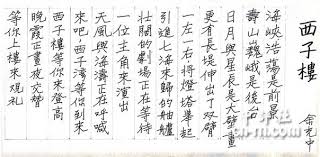 西子樓
余光中
海峽浩蕩是前景
壽山巍峨是後台
日月與星辰是大佈景
更有長堤伸出了雙臂
一左一右將燈塔舉起
引進七海來歸的舳艫
壯闊的劇場正在等待
一位主角來演出
天風與海濤正在呼喊
來吧西子灣等你到來
西子樓等你來登高
晚霞正晝夜交替
等你上樓來觀禮